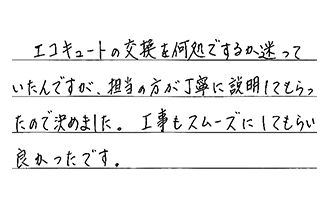 エコキュートの交換を何処でするか迷って
いたんですが、担当の方が丁寧に説明してもらっ
たので決めました。工事もスムーズにしてもらい
良かったです。